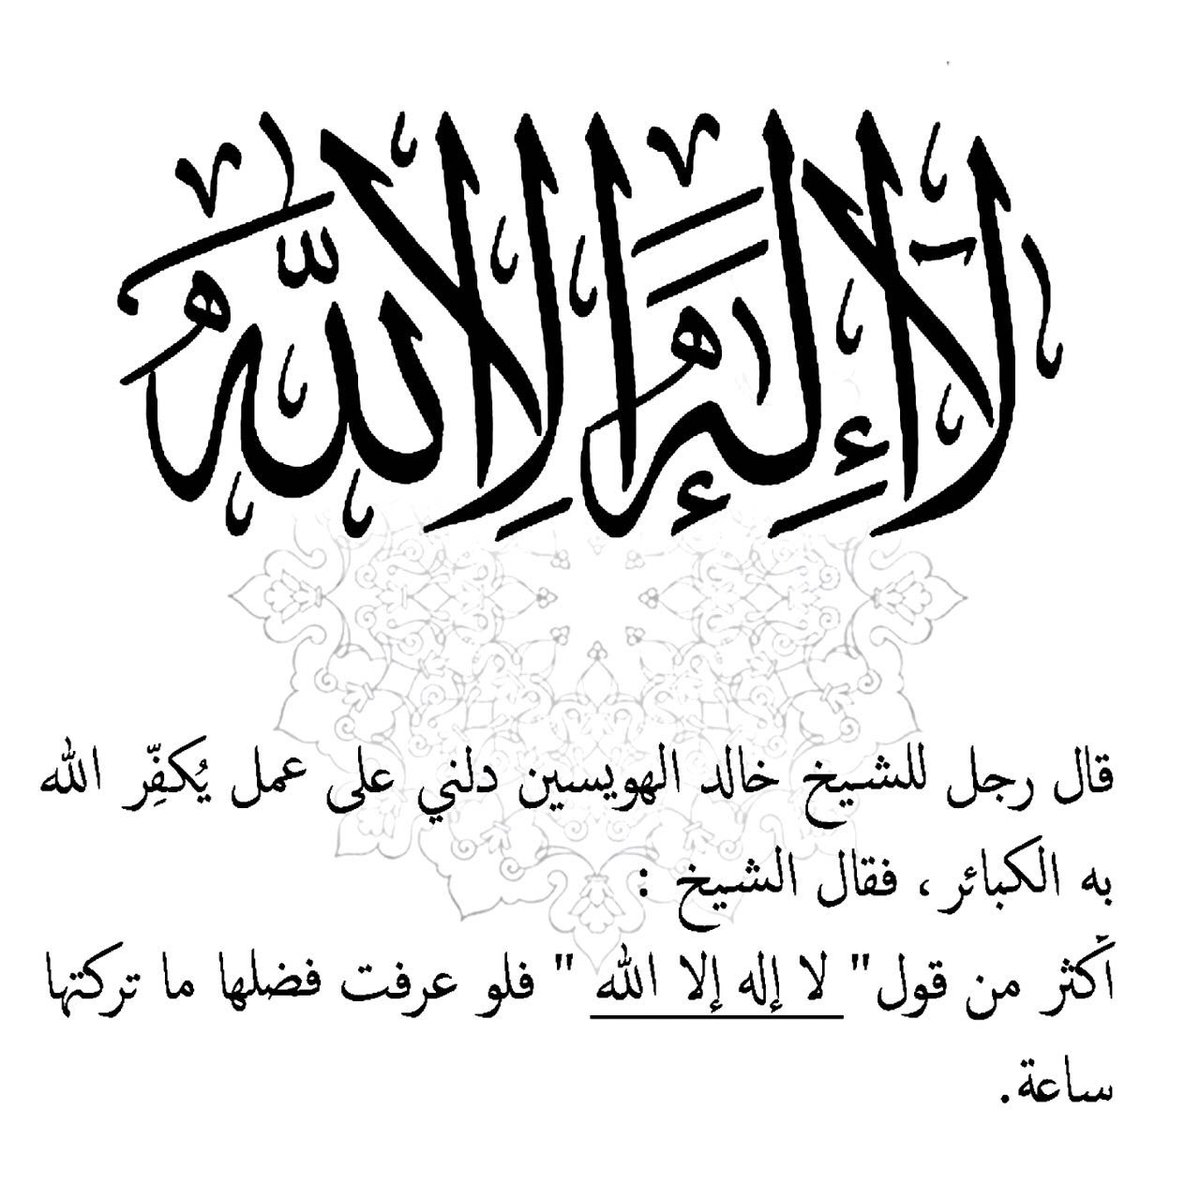 لَا إِلَٰهَ إِلَّا اللَّهُ
قال رجل للشيخ خالد الهويسين دلني على عمل يُكفِّر الله
به الكبائر، فقال الشيخ :
أكثر من قول" لا إله إلا الله " فلو عرفت فضلها ما تركتها
ساعة.